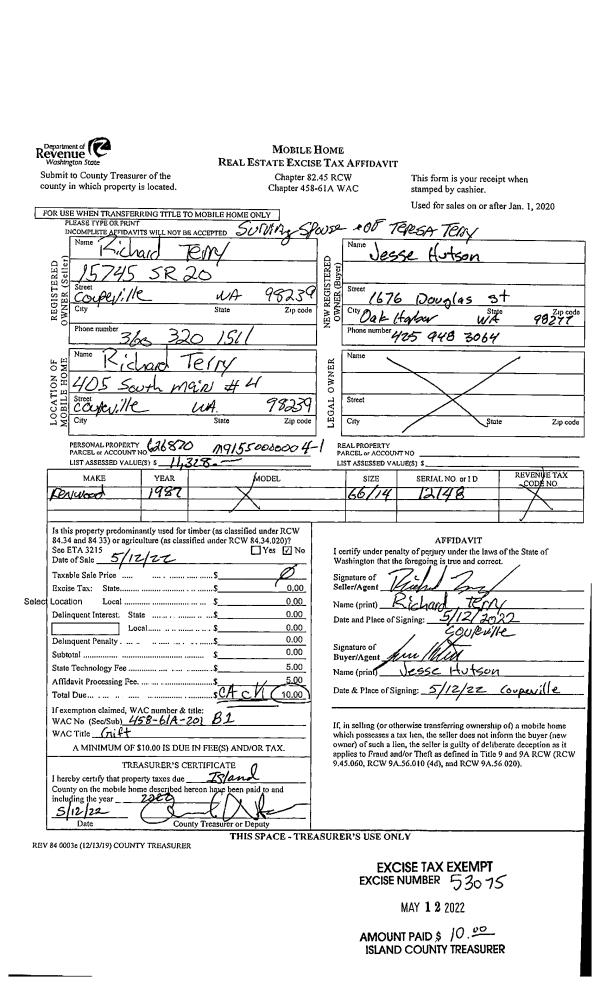 Department of
Revenue
Washington State
MOBILE HOME
REAL ESTATE EXCISE TAX AFFIDAVIT
Submit to County Treasurer of the
county in which property is located.
Chapter 82.45 RCW
Chapter 458-61A WAC
This form is your receipt when
stamped by cashier.
Used for sales on or after Jan. 1, 2020
FOR USE WHEN TRANSFERRING TITLE TO MOBILE HOME ONLY
PLEASE TYPE OR PRINT
INCOMPLETE AFFIDAVITS WILL NOT BE ACCEPTED
Spouse of Teresa Terry
REGISTERED OWNER (Seller)
Name Richard Terry
15745 SR 20
Street
Coupeville WA 98239
City State Zip code
Phone number
360 320 1511
NEW REGISTERED OWNER (Buyer)
Name
Jesse Hutson
1676 Douglas St
Street
City Oak Harbor State WA Zip code 98277
Phone number 425 948 3064
LOCATION OF MOBILE HOME
Name Richard Terry
405 South Main # 4
Street
Coupeville WA 98239
City State Zip code
LEGAL OWNER
Name
Street
City State Zip code
PERSONAL PROPERTY
PARCEL or ACCOUNT NO 626820
LIST ASSESSED VALUE(S) $ 11,328.-
REAL PROPERTY
PARCEL or ACCOUNT NO
LIST ASSESSED VALUE(S) $
MAKE YEAR MODEL SIZE SERIAL NO. or I D REVENUE TAX CODE NO.
Kenwood 1987 66/14 12148
Is this property predominantly used for timber (as classified under RCW
84.34 and 84 33) or agriculture (as classified under RCW 84.34.020)?
See ETA 3215 Yes No
Date of Sale 5/12/22
Taxable Sale Price $ 0
Excise Tax: State $ 0.00
Select Location Local $ 0.00
Delinquent Interest: State $ 0.00
Local $ 0.00
Delinquent Penalty $ 0.00
Subtotal $ 0.00
State Technology Fee $ 5.00
Affidavit Processing Fee $ 5.00
Total Due $ 10.00
If exemption claimed, WAC number & title:
WAC No (Sec/Sub) 458-61A-201 B1
WAC Title Gift
A MINIMUM OF $10.00 IS DUE IN FEE(S) AND/OR TAX.
AFFIDAVIT
I certify under penalty of perjury under the laws of the State of
Washington that the foregoing is true and correct.
Signature of
Seller/Agent
Name (print) Richard Terry
Date and Place of Signing: 5/12/2022
Coupeville
Signature of
Buyer/Agent
Name (print) Jesse Hutson
Date & Place of Signing: 5/12/22 Coupeville
If, in selling (or otherwise transferring ownership of) a mobile home
which possesses a tax lien, the seller does not inform the buyer (new
owner) of such a lien, the seller is guilty of deliberate deception as it
applies to Fraud and/or Theft as defined in Title 9 and 9A RCW (RCW
9.45.060, RCW 9A.56.010 (4d), and RCW 9A.56 020).
TREASURER'S CERTIFICATE
I hereby certify that property taxes due Island
County on the mobile home described hereon have been paid to and
including the year 2022
5/12/22
Date County Treasurer or Deputy
THIS SPACE - TREASURER'S USE ONLY
REV 84 0003e (12/13/19) COUNTY TREASURER
EXCISE TAX EXEMPT
EXCISE NUMBER 53075
MAY 12 2022
AMOUNT PAID $ 10.00
ISLAND COUNTY TREASURER